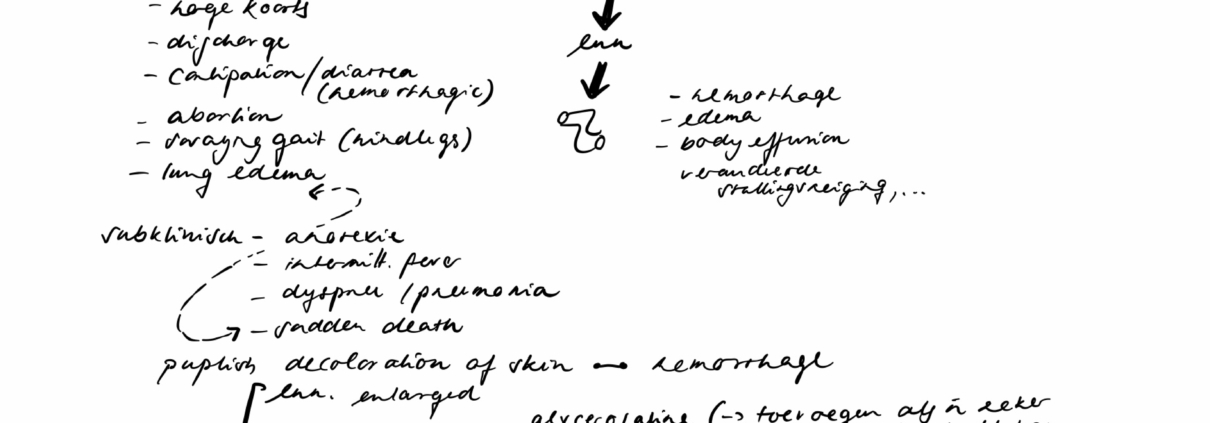 - hoge koorts
- discharge
- constipation / diarrea
(hemorrhagic)
- abortion
- swaying gait (hindlegs)
- lung edema
lnn
- hemorrhage
- edema
- body effusion
veranderde
stollingsneiging, ...
subklinisch - anorexie
- intermitt. fever
- dyspneu / pneumonia
- sudden death
purplish decoloration of skin — hemorrhage
lnn. enlarged
(-> toevoegen als n zeker